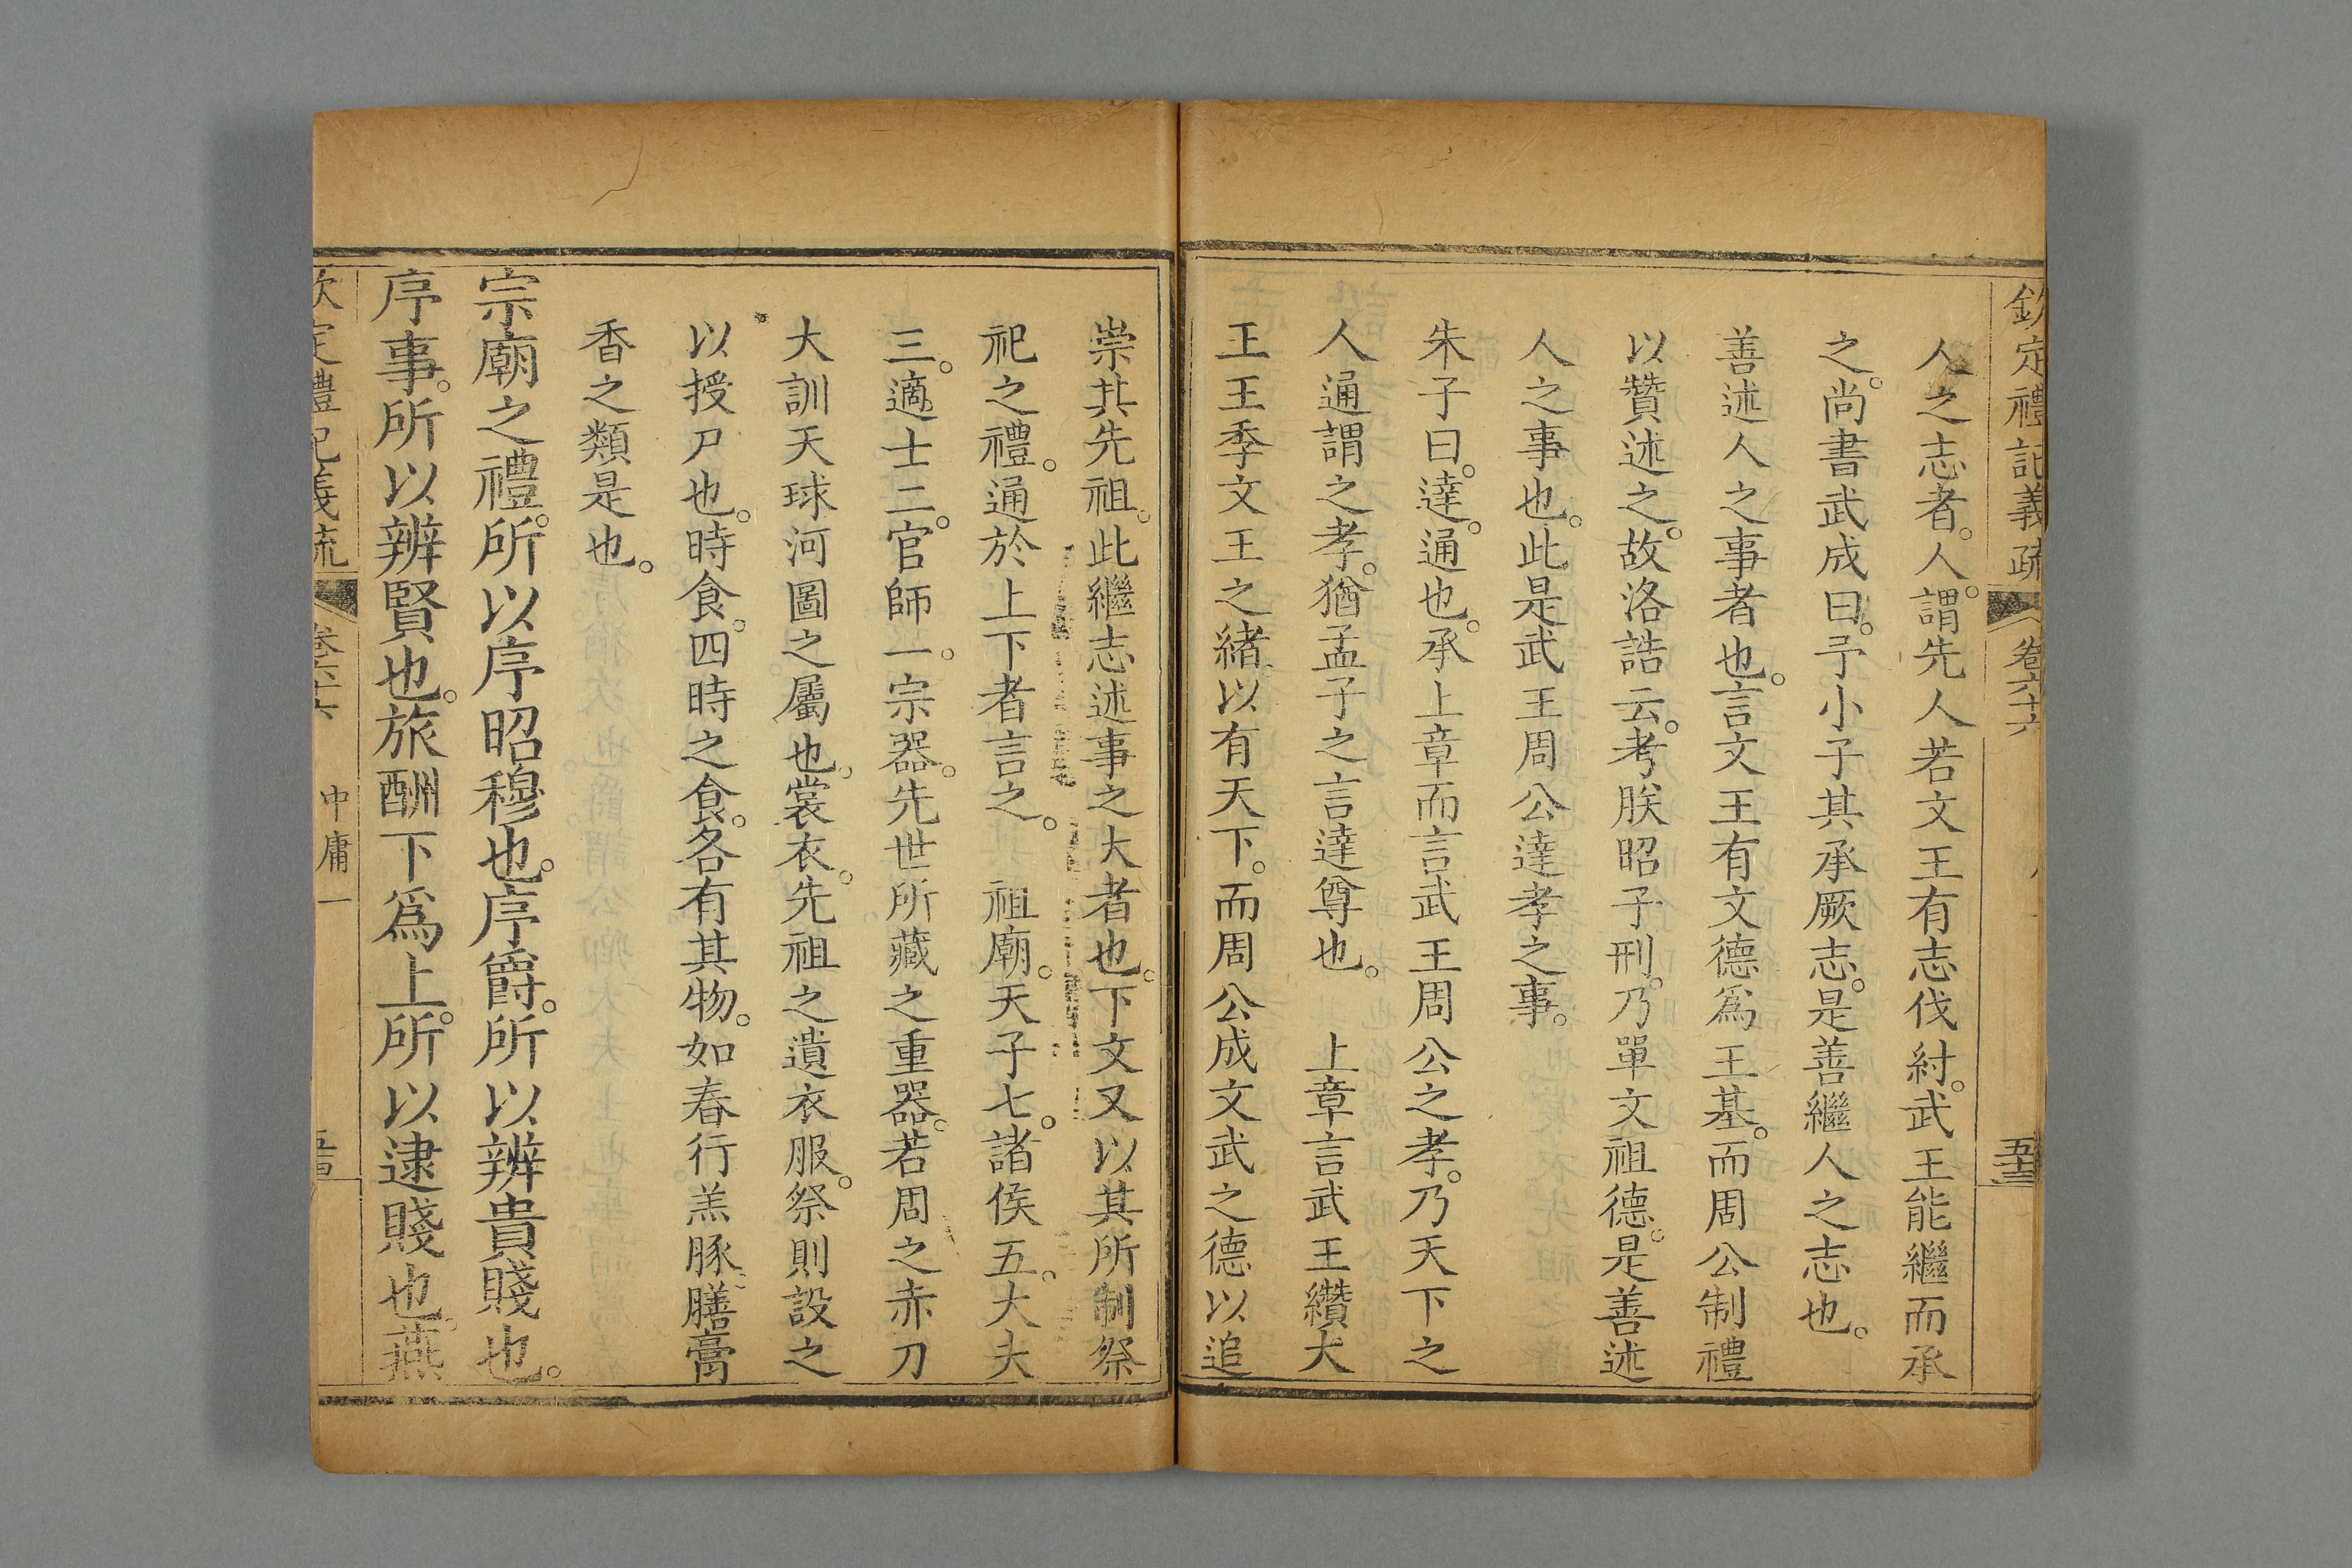 欽定禮記義疏 卷六十六 五十三
人之志者。人。謂先人若文王有志伐紂。武王能繼而承
之。尚書武成曰。予小子其承厥志。是善繼人之志也。
善述人之事者也。言文王有文德爲王基。而周公制禮
以贊述之。故洛誥云。考朕昭子刑。乃單文祖德。是善述
人之事也。此是武王周公達孝之事。
朱子曰。達。通也。承上章而言武王周公之孝。乃天下之
人通謂之孝。猶孟子之言達尊也。 上章言武王纘大
王王季文王之緒。以有天下。而周公成文武之德以追
崇其先祖。此繼志述事之大者也。下文又以其所制祭
祀之禮。通於上下者言之。 祖廟。天子七。諸侯五。大夫
三。適士二。官師一。宗器。先世所藏之重器。若周之赤刀
大訓天球河圖之屬也。裳衣。先祖之遺衣服。祭則設之
以授尸也。時食。四時之食。各有其物。如春行羔豚。膳膏
香之類是也。
宗廟之禮。所以序昭穆也。序爵。所以辨貴賤也。
序事。所以辨賢也。旅酬下爲上。所以逮賤也。燕
欽定禮記義疏 卷六十六 中庸一